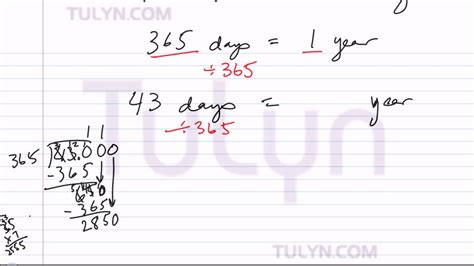 TULYN.COM
365 days = 1 year
÷365
43 days = year
÷365
Tulyn
11
365
000
-365
-365
2850
TULYN.COM